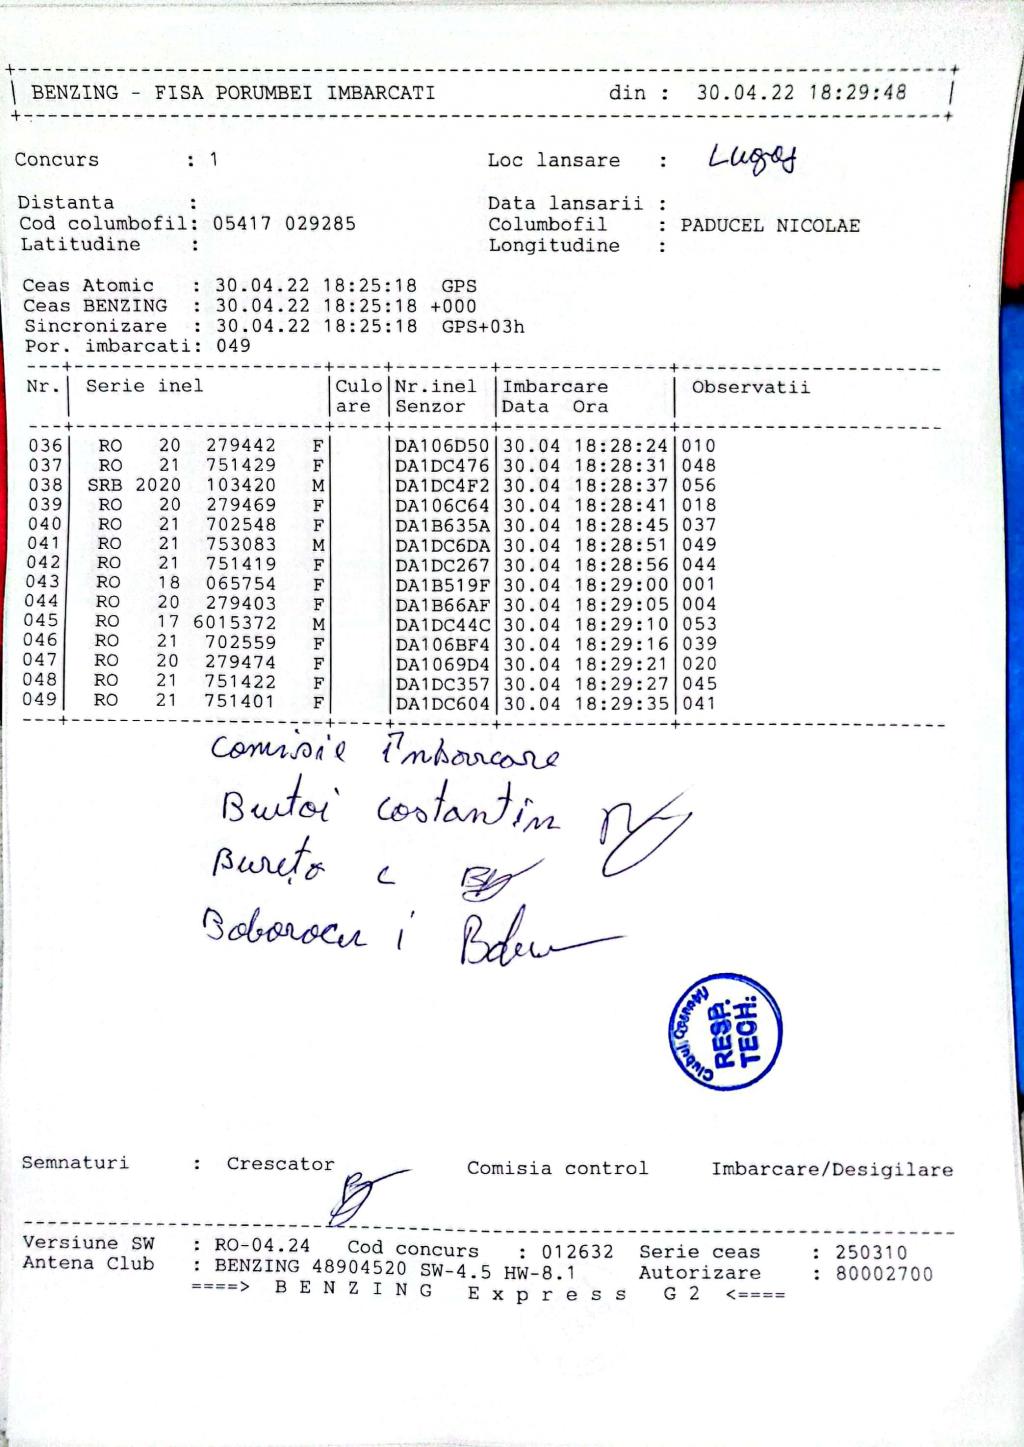 BENZING - FISA PORUMBEI IMBARCATI din : 30.04.22 18:29:48
Concurs : 1 Loc lansare : Lugoj
Distanta : Data lansarii :
Cod columbofil: 05417 029285 Columbofil : PADUCEL NICOLAE
Latitudine : Longitudine :
Ceas Atomic : 30.04.22 18:25:18 GPS
Ceas BENZING : 30.04.22 18:25:18 +000
Sincronizare : 30.04.22 18:25:18 GPS+03h
Por. imbarcati: 049
Nr. Serie inel Culo Nr.inel Imbarcare Observatii
are Senzor Data Ora
036 RO 20 279442 F DA106D50 30.04 18:28:24 010
037 RO 21 751429 F DA1DC476 30.04 18:28:31 048
038 SRB 2020 103420 M DA1DC4F2 30.04 18:28:37 056
039 RO 20 279469 F DA106C64 30.04 18:28:41 018
040 RO 21 702548 F DA1B635A 30.04 18:28:45 037
041 RO 21 753083 M DA1DC6DA 30.04 18:28:51 049
042 RO 21 751419 F DA1DC267 30.04 18:28:56 044
043 RO 18 065754 F DA1B519F 30.04 18:29:00 001
044 RO 20 279403 F DA1B66AF 30.04 18:29:05 004
045 RO 17 6015372 M DA1DC44C 30.04 18:29:10 053
046 RO 21 702559 F DA106BF4 30.04 18:29:16 039
047 RO 20 279474 F DA1069D4 30.04 18:29:21 020
048 RO 21 751422 F DA1DC357 30.04 18:29:27 045
049 RO 21 751401 F DA1DC604 30.04 18:29:35 041
Comisie Îmbarcare
Butoi Costantin
Burețo C
Boborocu i
Clubul
RESP.
TECH.
Semnaturi : Crescator Comisia control Imbarcare/Desigilare
Versiune SW : RO-04.24 Cod concurs : 012632 Serie ceas : 250310
Antena Club : BENZING 48904520 SW-4.5 HW-8.1 Autorizare : 80002700
====> B E N Z I N G E x p r e s s G 2 <====